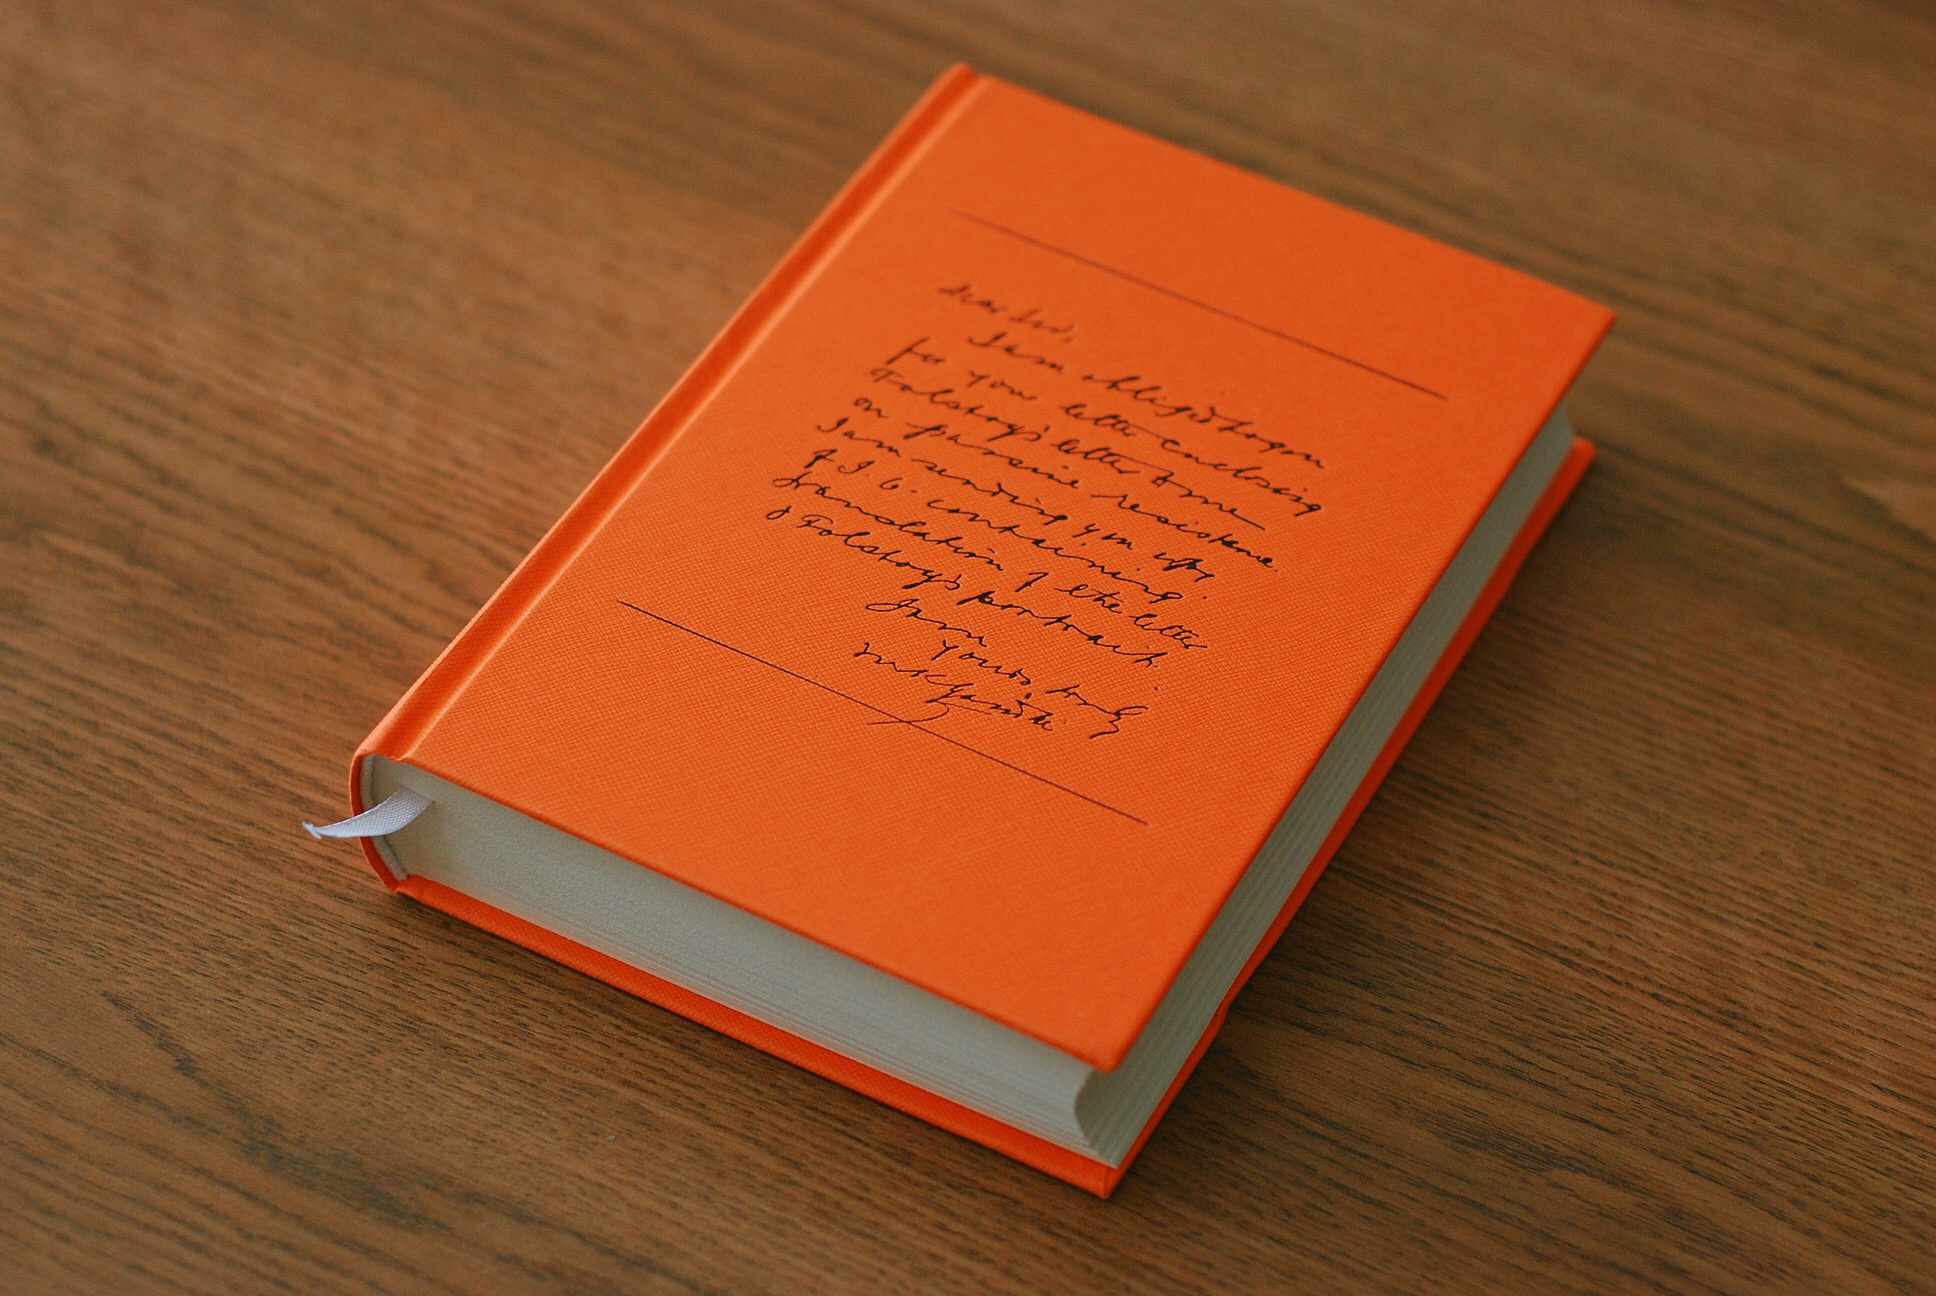 Dear Sir,
I am obliged to you
for your letter enclosing
Tolstoy's letter to me
on passive resistance.
I am sending you copy
of I. O. containing
translation of the letter
& Tolstoy's portrait.
I am
Yours truly
MKGandhi